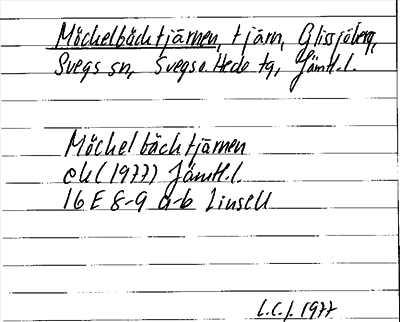 Måckelbäcktjärnen, tjärn, Glissjöberg,
Svegs sn, Svegs o. Hede tg, Jämtl. l.
Måckelbäcktjärnen
ek (1977) Jämtl. l.
16 E 8-9 a-b Linsell
L.C.J. 1977